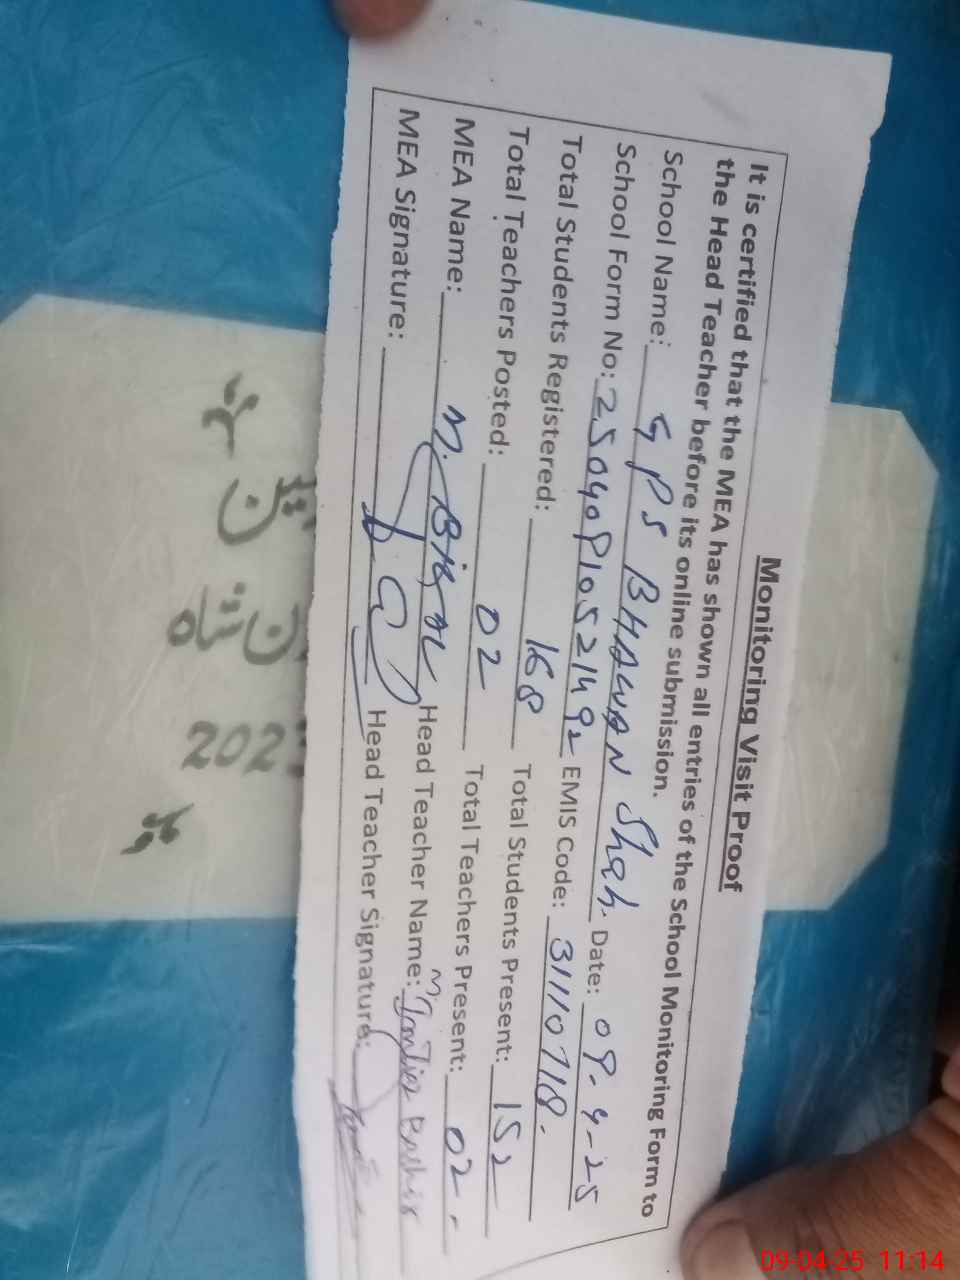 Monitoring Visit Proof
It is certified that the MEA has shown all entries of the School Monitoring Form to
the Head Teacher before its online submission.
School Name: GPS BHAWAN Shah. Date: 09-4-25
School Form No: EMIS Code: 31110718.
Total Students Registered: 168 Total Students Present: 152
Total Teachers Posted: 02 Total Teachers Present: 02-
MEA Name: M. Head Teacher Name: M. Imtiaz Bashir
MEA Signature: Head Teacher Signature:
202
09-04-25 11:14